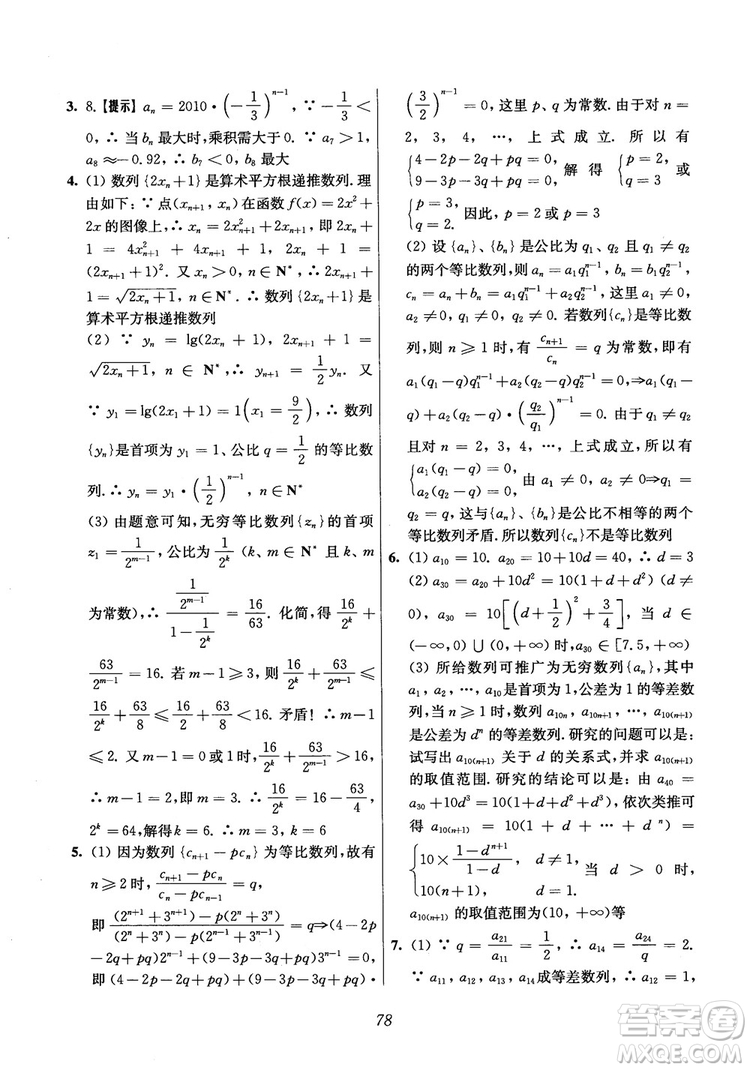 3. 8.【提示】 aₙ = 2010 · (-1/3)ⁿ⁻¹, ∵ -1/3 <
0, ∴ 当 bₙ 最大时, 乘积需大于 0. ∵ a₇ > 1,
a₈ ≈ -0.92, ∴ b₇ < 0, b₈ 最大
4. (1) 数列{2xₙ+1}是算术平方根递推数列. 理
由如下: ∵ 点(xₙ₊₁, xₙ)在函数 f(x) = 2x² +
2x 的图像上, ∴ xₙ = 2x²ₙ₊₁ + 2xₙ₊₁, 即 2xₙ +
1 = 4x²ₙ₊₁ + 4xₙ₊₁ + 1, ∴ 2xₙ + 1 =
(2xₙ₊₁+1)². ∵ xₙ > 0, n ∈ N*, ∴ 2xₙ₊₁ +
1 = √(2xₙ+1), n ∈ N*. ∴ 数列{2xₙ+1}是
算术平方根递推数列
(2) ∵ yₙ = lg(2xₙ + 1), 2xₙ₊₁ + 1 =
√(2xₙ+1), n ∈ N*, ∴ yₙ₊₁ = 1/2 yₙ. 又
∵ y₁ = lg(2x₁+1) = 1(x₁ = 9/2), ∴ 数列
{yₙ}是首项为 y₁ = 1, 公比 q = 1/2 的等比数
列. ∴ yₙ = y₁ · (1/2)ⁿ⁻¹, n ∈ N*
(3) 由题意可知, 无穷等比数列{zₙ}的首项
z₁ = 1/2ᵐ⁻¹, 公比为 1/2ᵏ (k、m ∈ N* 且 k、m
为常数), ∴ (1/2ᵐ⁻¹)/(1 - 1/2ᵏ) = 16/63. 化简, 得 16/2ᵏ +
63/2ᵐ⁻¹ = 16. 若 m-1 ≥ 3, 则 16/2ᵏ + 63/2ᵐ⁻¹ ≤
16/2ᵏ + 63/8 ≤ 16/2 + 63/8 < 16. 矛盾! ∴ m-1
≤ 2. 又 m-1 = 0 或 1 时, 16/2ᵏ + 63/2ᵐ⁻¹ > 16,
∴ m - 1 = 2. ∴ 16/2ᵏ = 16 - 63/4, ∴
2ᵏ = 64, 解得 k = 6. ∴ m = 3, k = 6
5. (1) 因为数列{cₙ₊₁ - pcₙ}为等比数列, 故有
n ≥ 2 时, (cₙ₊₁ - pcₙ)/(cₙ - pcₙ₋₁) = q,
即 ((2ⁿ⁺¹+3ⁿ⁺¹)-p(2ⁿ+3ⁿ))/((2ⁿ+3ⁿ)-p(2ⁿ⁻¹+3ⁿ⁻¹)) = q⇒(4-2p
-2q+pq)2ⁿ⁻¹ + (9-3p-3q+pq)3ⁿ⁻¹ =
0⇒(4-2p-2q+pq)+(9-3p-3q+pq) ·
(3/2)ⁿ⁻¹ = 0, 这里 p、q 为常数. 由于对 n =
2, 3, 4, …, 上式成立. 所以有
{4-2p-2q+pq = 0, 9-3p-3q+pq = 0, 解得 {p = 2, q = 3 或
{p = 3, q = 2. 因此, p = 2 或 p = 3
(2) 设{aₙ}、{bₙ}是公比为 q₁、q₁ ≠ q₂
的两个等比数列, 则 aₙ = a₁q₁ⁿ⁻¹, bₙ = a₂q₂ⁿ⁻¹,
cₙ = aₙ + bₙ = a₁q₁ⁿ⁻¹ + a₂q₂ⁿ⁻¹, 这里 a₁ ≠ 0,
a₂ ≠ 0, q₁ ≠ 0, q₂ ≠ 0. 若数列{cₙ}是等比
数列, 则 n ≥ 1 时, 有 cₙ₊₁/cₙ = q 为常数, 即有
a₁(q₁ - q)q₁ⁿ⁻¹ + a₂(q₂ - q)q₂ⁿ⁻¹ = 0⇒a₁(q₁ -
q) + a₂(q₂-q) · (q₂/q₁)ⁿ⁻¹ = 0. 由于 q₁ ≠ q₂
且对 n = 2, 3, 4, …, 上式成立, 所以有
{a₁(q₁-q) = 0, a₂(q₂-q) = 0, 由 a₁ ≠ 0, a₂ ≠ 0⇒q₁ =
q₂ = q. 这与{aₙ}、{bₙ}是公比不相等的两个
等比数列矛盾. 所以数列{cₙ}不是等比数列
6. (1) a₁₀ = 10. a₂₀ = 10+10d = 40, ∴ d = 3
(2) a₃₀ = a₂₀+10d² = 10(1+d+d²)(d ≠
0), a₃₀ = 10[(d+1/2)²+3/4], 当 d ∈
(-∞, 0) ∪ (0, +∞) 时, a₃₀ ∈ [7.5, +∞)
(3) 所给数列可推广为无穷数列{aₙ}, 其中
a₁, a₂, …, a₁₀ 是首项为 1, 公差为 1 的等差数
列, 当 n ≥ 1 时, 数列 a₁₀ₙ, a₁₀ₙ₊₁, …, a₁₀₍ₙ₊₁₎
是公差为 dⁿ 的等差数列. 研究的问题可以是:
试写出 a₁₀₍ₙ₊₁₎ 关于 d 的关系式, 并求 a₁₀₍ₙ₊₁₎
的取值范围. 研究的结论可以是: 由 a₄₀ =
a₃₀+10d³ = 10(1+d+d²+d³), 依次类推可
得 a₁₀₍ₙ₊₁₎ = 10(1 + d + … + dⁿ) =
{10 × (1-dⁿ⁺¹)/(1-d), d ≠ 1, 10(n+1), d = 1. 当 d > 0 时,
a₁₀₍ₙ₊₁₎ 的取值范围为(10, +∞)等
7. (1) ∵ q = a₂₁/a₁₁ = 1/2, ∴ a₁₄ = a₂₄/q = 2.
∵ a₁₁, a₁₂, a₁₃, a₁₄ 成等差数列, ∴ a₁₂ = 1,
78
答案圈